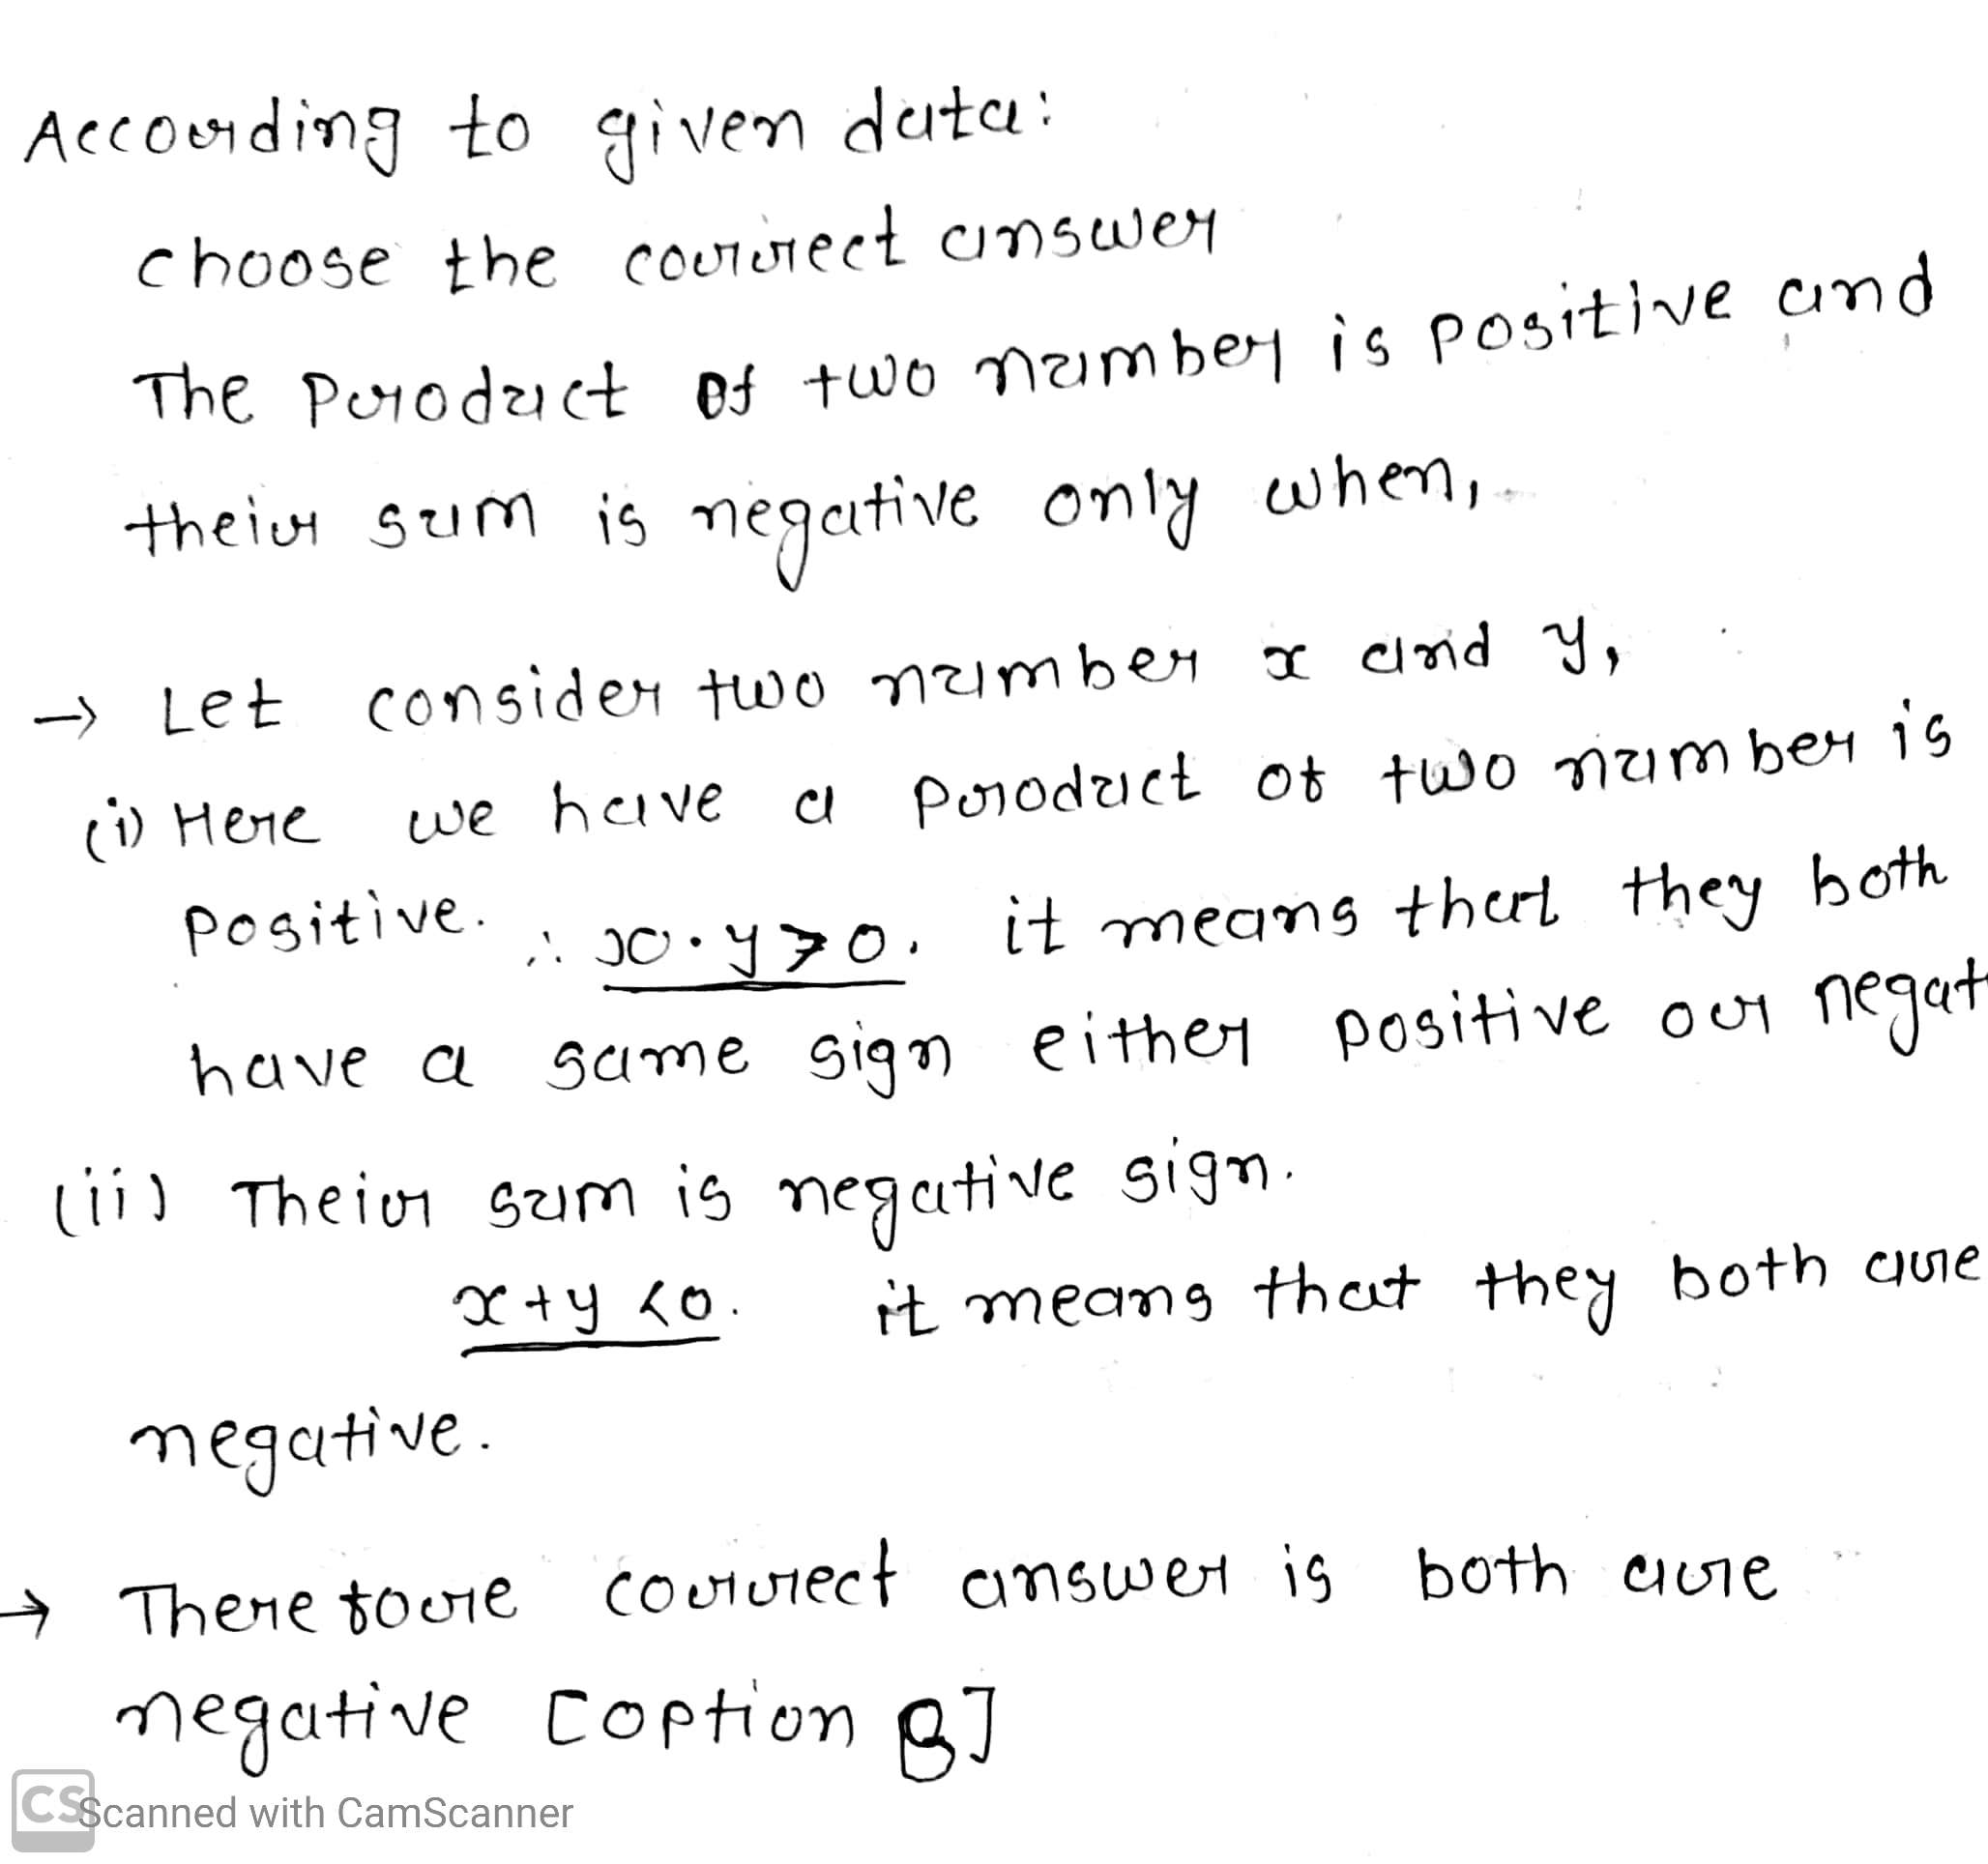 According to given data:
choose the correct answer
The Product of two number is positive and
their sum is negative only when,
→ Let consider two number x and y,
(i) Here we have a product of two number is
positive. ∴ x·y>0. it means that they both
have a same sign either positive or negat
(ii) Their sum is negative sign.
x+y<0. it means that they both are
negative.
→ Therefore correct answer is both are
negative [option B]
CS Scanned with CamScanner